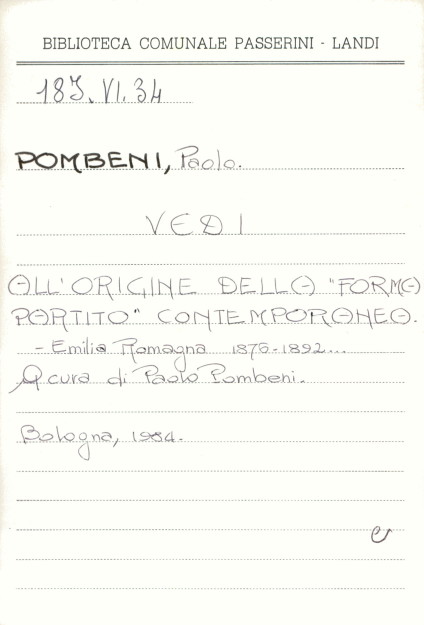 BIBLIOTECA COMUNALE PASSERINI - LANDI
187.VI.34
POMBENI, Paolo.
VEDI
ALL'ORIGINE DELLA "FORMA
PARTITO" CONTEMPORANEO.
- Emilia Romagna 1876-1892...
A cura di Paolo Pombeni.
Bologna, 1984.